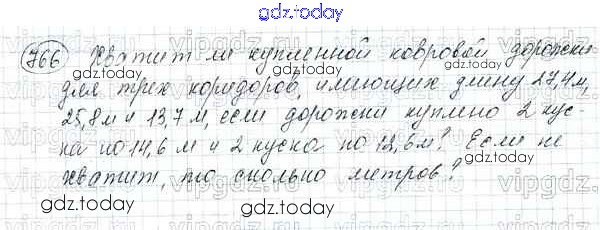 gdz.today
766 Хватит ли купленной ковровой дорожки
gdz.today gdz.today
для трех коридоров, имеющих длину 27,4 м,
25,8 м и 13,7 м, если дорожки куплено 2 кус-
gdz.today
ка по 14,6 м и 2 куска по 18,6 м? Если не
хватит, то сколько метров?
gdz.today
gdz.today